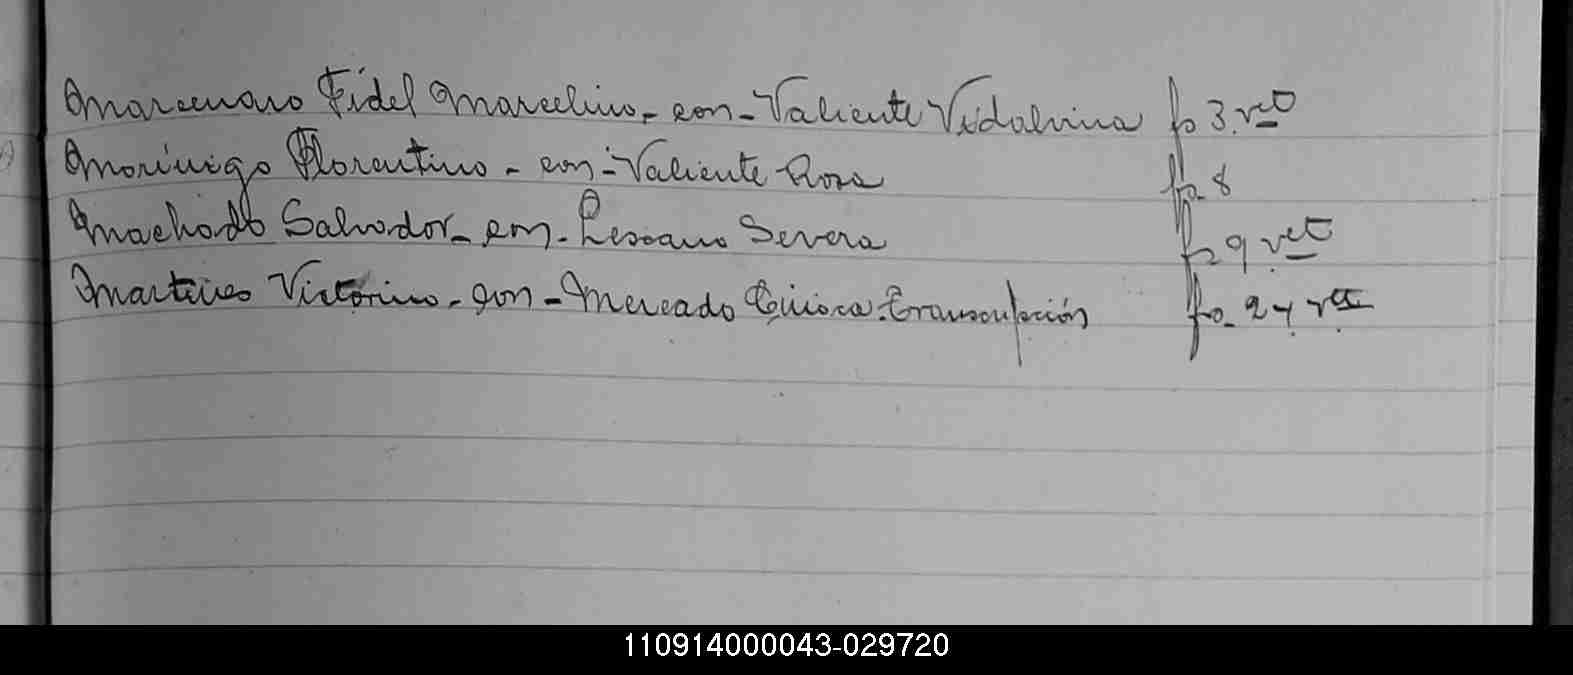 Marcenaro Fidel Marcelino - con - Valiente Vidalvina fo 3. vto
Morínigo Florentino - con - Valiente Rosa fo. 8
Machado Salvador - con - Lescano Severa fo 9 vto
Martines Victorino - con - Mercado Transcripción fo. 24 vto
110914000043-029720